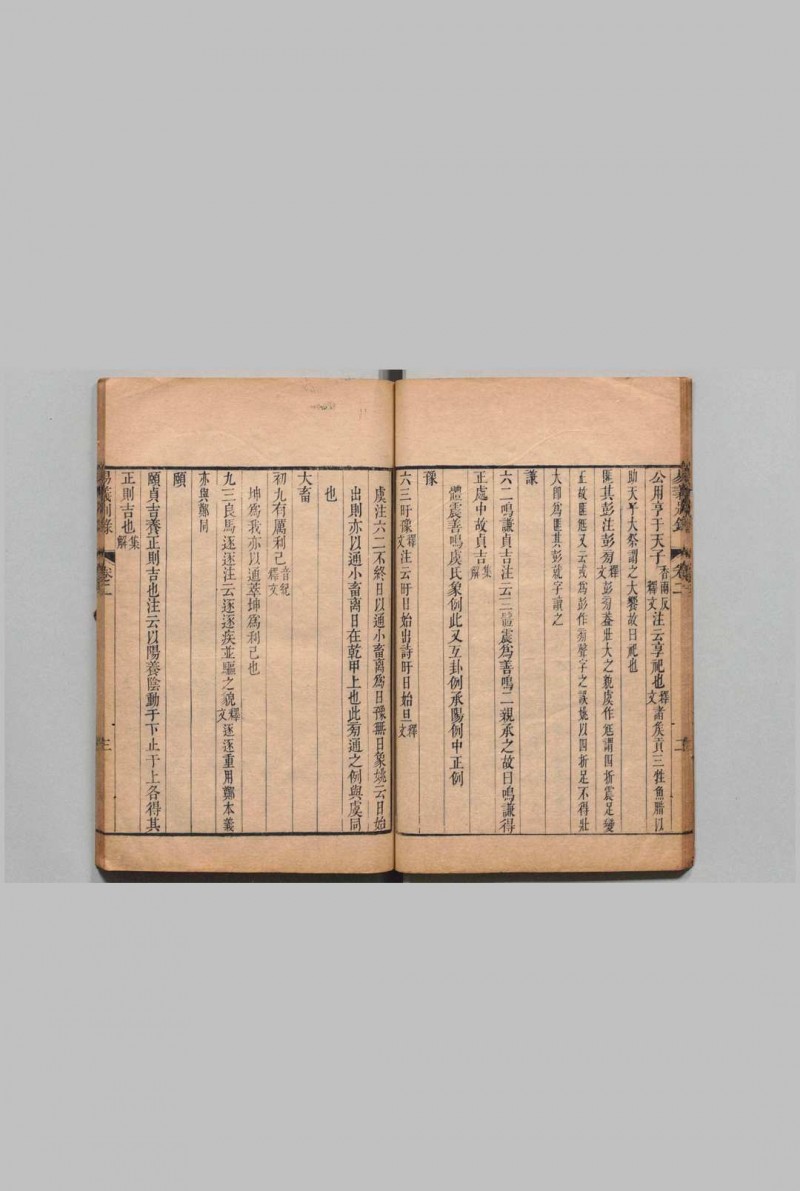 公用亨于天子香兩反釋文注云享祀也釋文諸矦貢三牲魚腊以
助天子大祭謂之大饗故曰祀也
匪其彭注彭匑釋文彭匑壯大之貌虞作尫謂四折震足變
正故匪尫又云或爲彭作匑聲字之誤姚以四折足不得壯
大卽爲匪其彭就字讀之
謙
六二鳴謙貞吉注云三體震爲善鳴二親承之故曰鳴謙得
正處中故貞吉集解
體震善鳴虞氏象例此又互卦例承陽例中正例
豫
六三盱豫釋文注云盱日始出詩盱日始旦釋文
虞注六二不終日以通小畜离爲日豫無日象姚云日始
出則亦以通小畜離日在乾甲上也此匑通之例與虞同
也
大畜
初九有厲利己音紀釋文
坤爲我亦以通萃坤爲利己也
九三良馬逐逐注云逐逐疾並驅之貌釋文逐逐重用鄭本義
亦與鄭同
頤
頤貞吉養正則吉也注云以陽養陰動于下止于上各得其
正則吉也集解
易義別錄 卷二